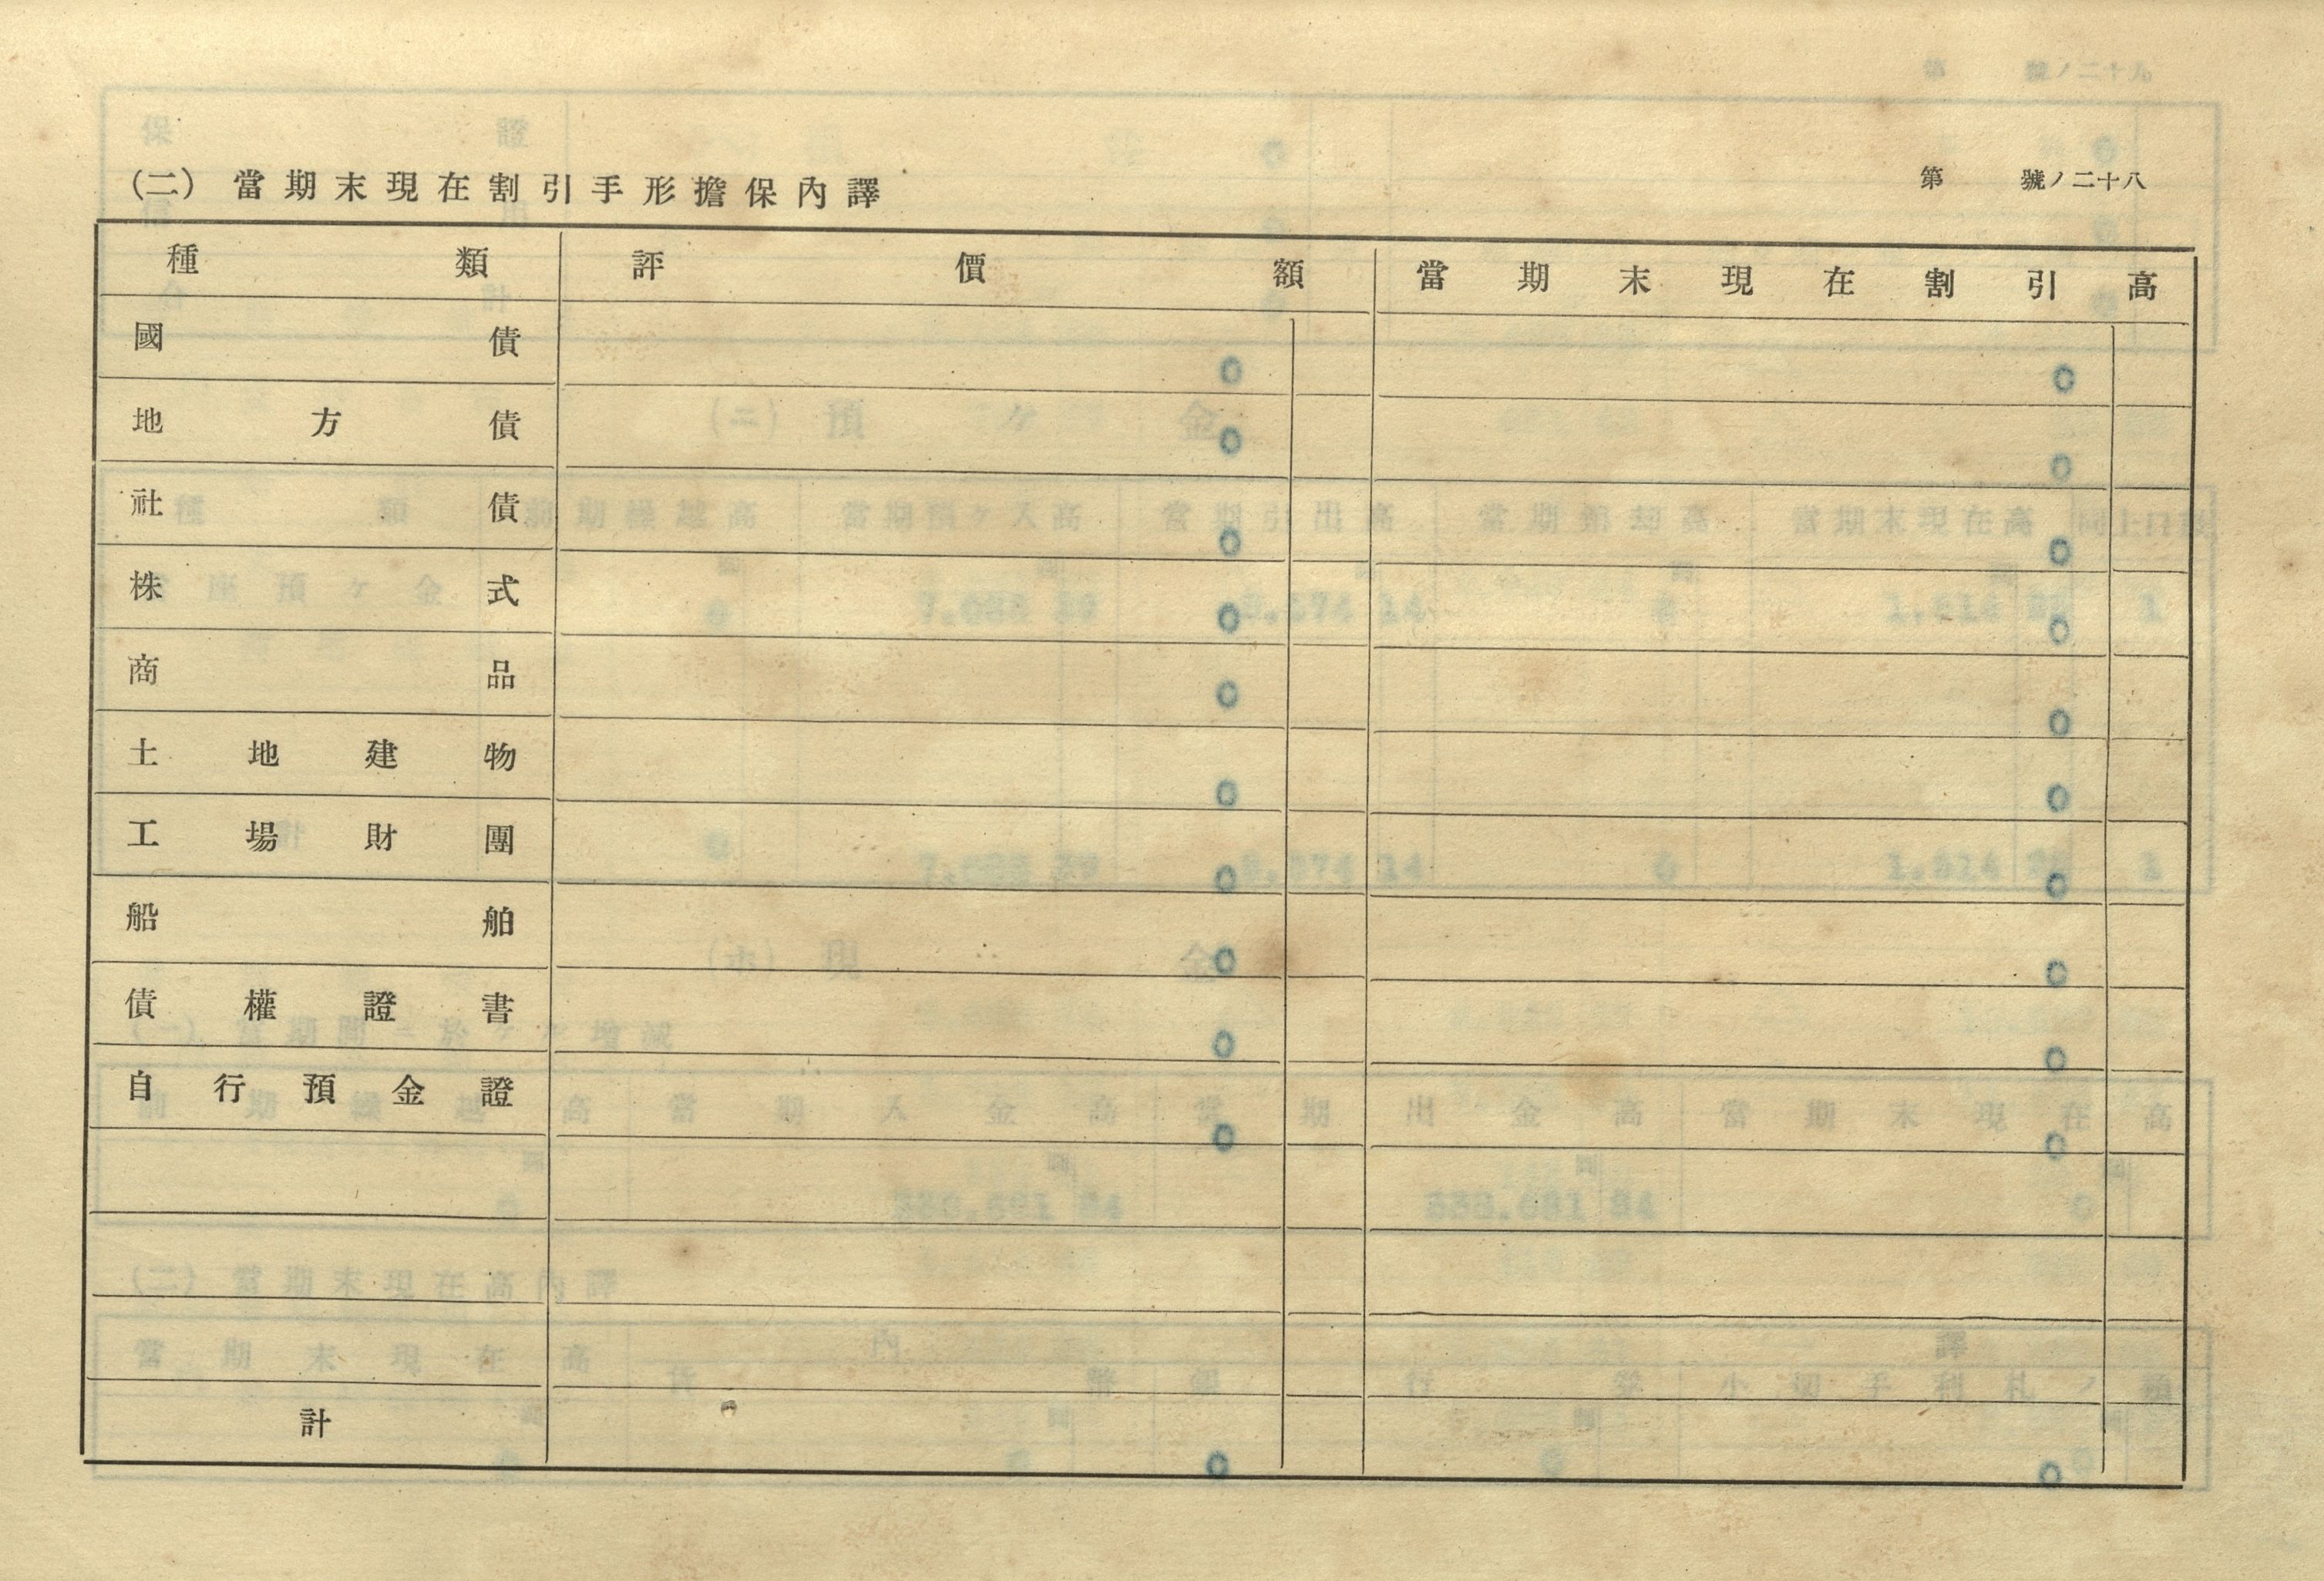 (二) 當期末現在割引手形擔保內譯
第 號ノ二十八
種類 評價額 當期末現在割引高
國債 0 0
地方債 0 0
社債 0 0
株式 0 0
商品 0 0
土地建物 0 0
工場財團 0 0
船舶 0 0
債權證書 0 0
自行預金證 0 0
計 0 0